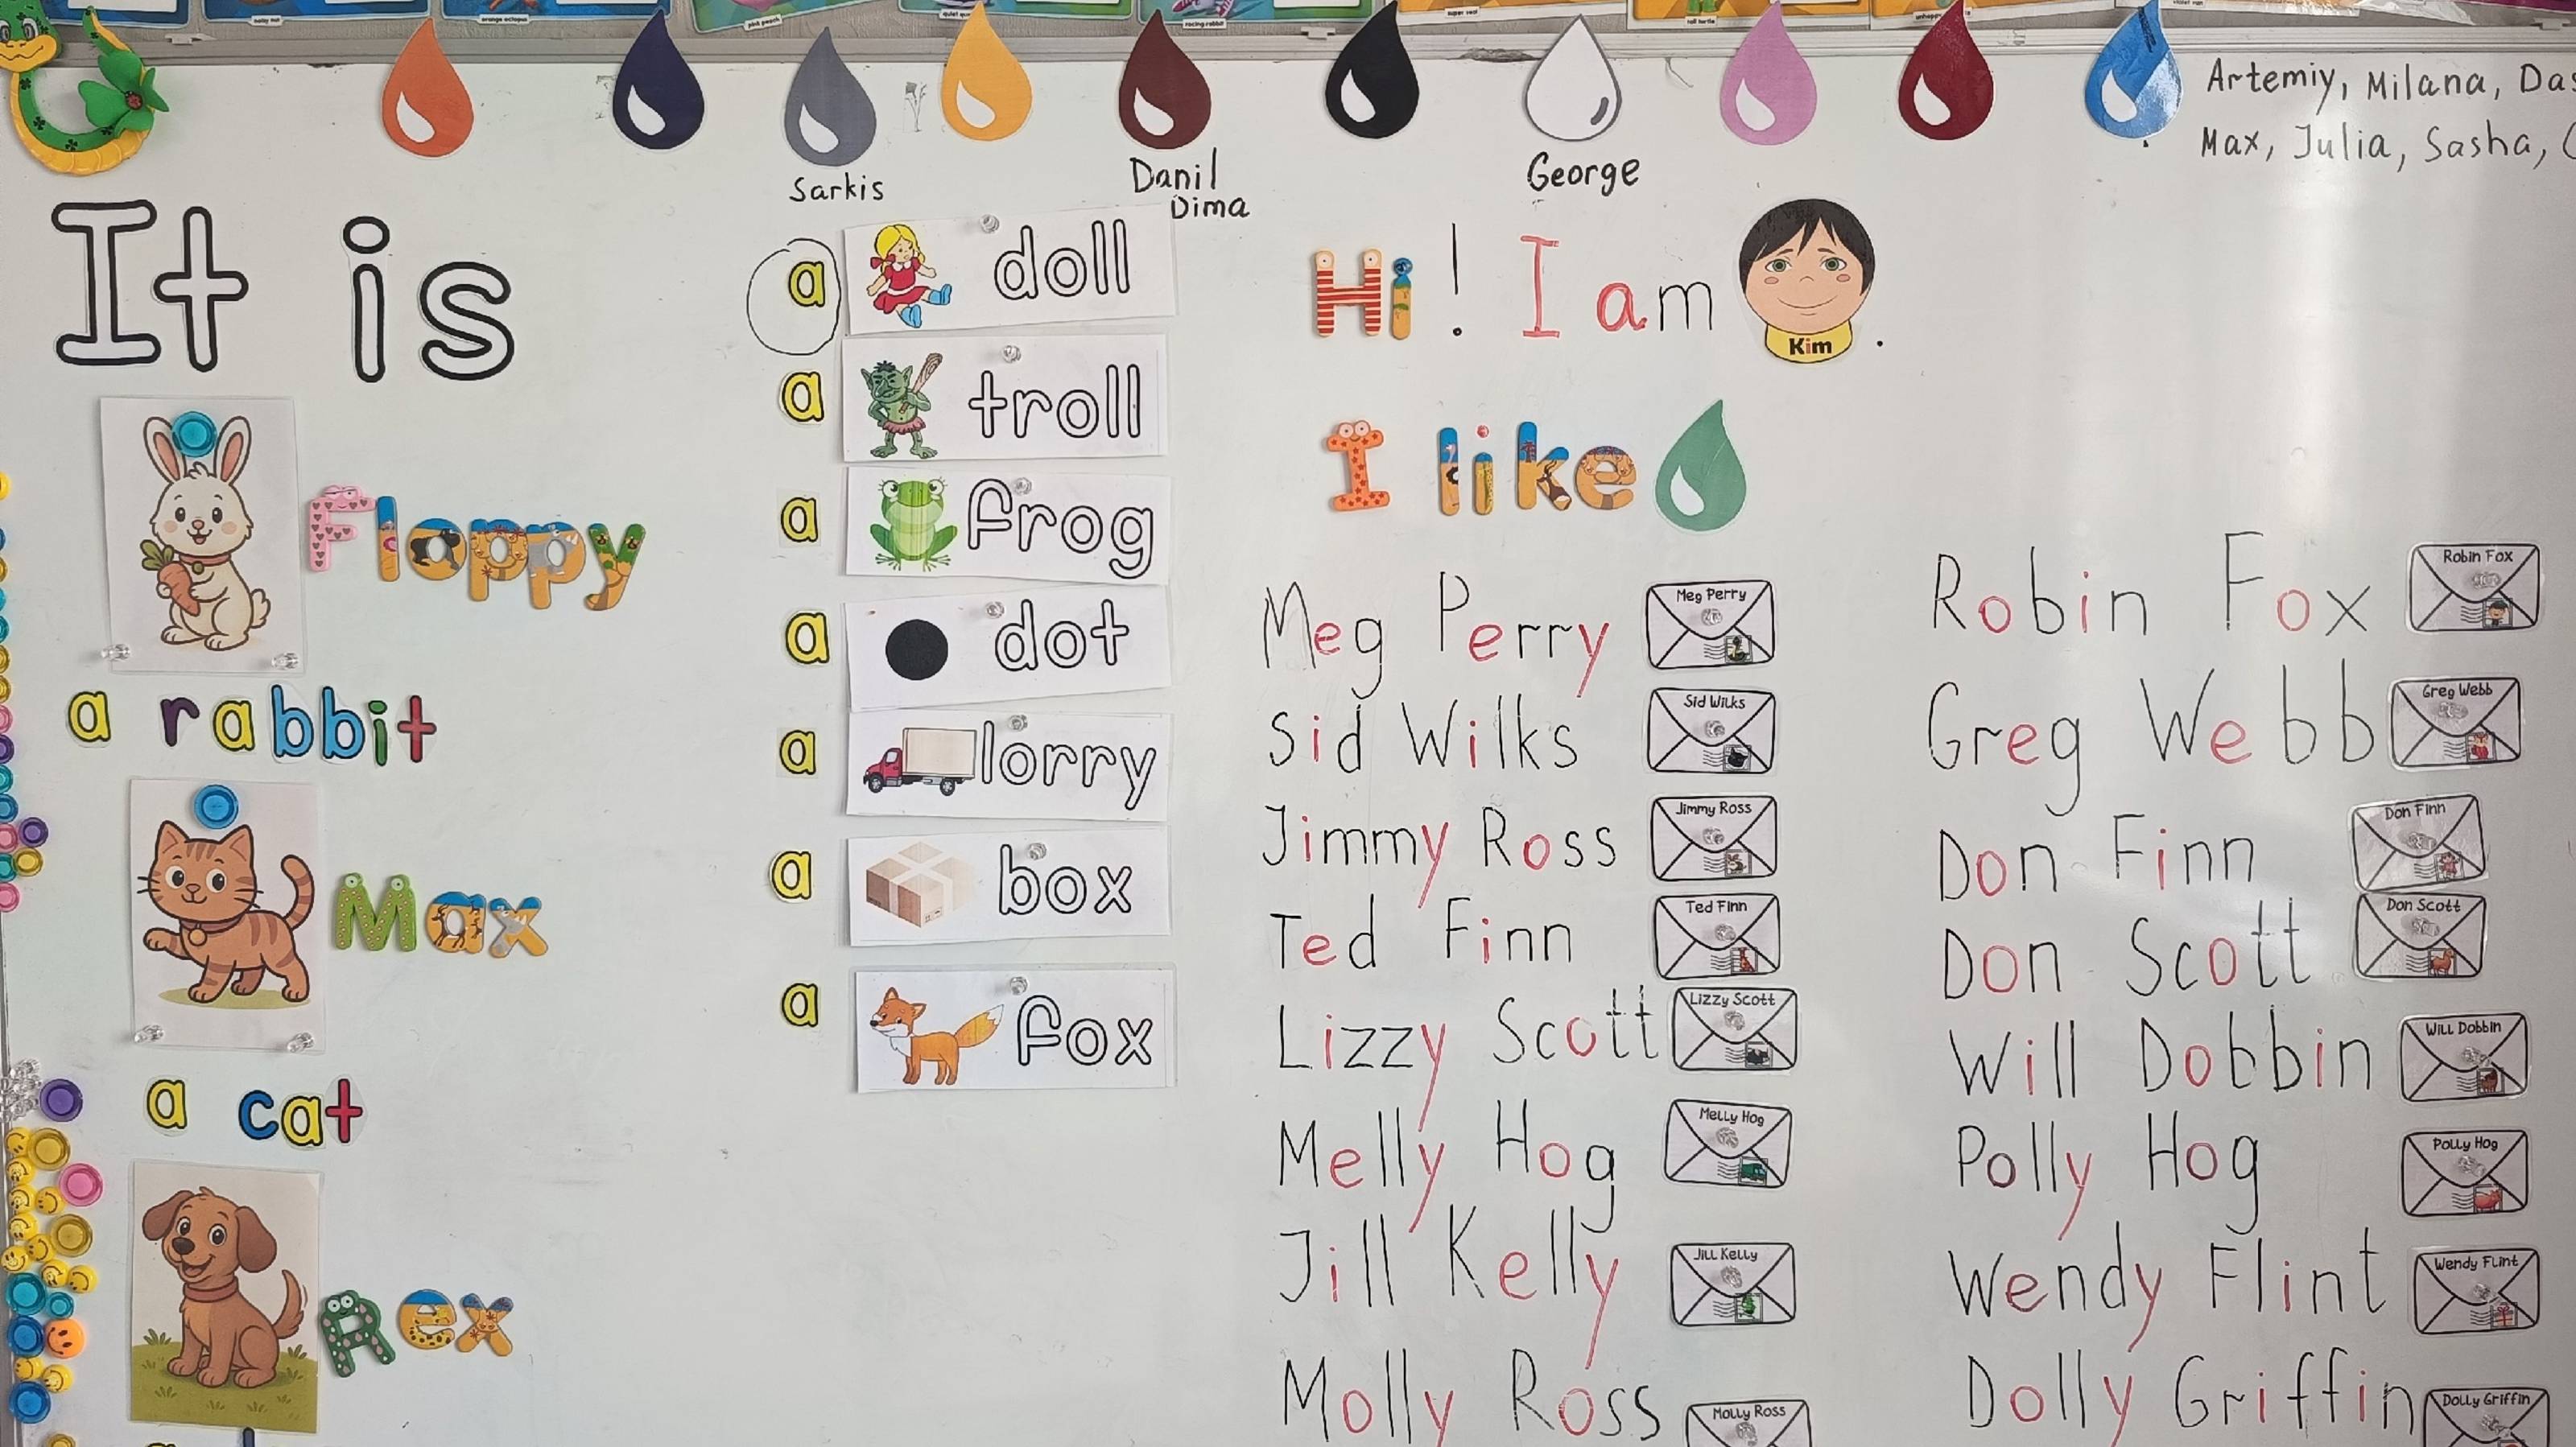 noisy nut
orange octopus
pink peach
racing rabbit
super seal
tall turtle
Artemiy, Milana,
Max, Julia, Sasha,
Sarkis
Danil
Dima
George
It is
Floppy
a rabbit
Max
a cat
Rex
a doll
a troll
a frog
a dot
a lorry
a box
a fox
Hi! I am
Kim
.
I like
Meg Perry
Meg Perry
Sid Wilks
Sid Wilks
Jimmy Ross
Jimmy Ross
Ted Finn
Ted Finn
Lizzy Scott
Lizzy Scott
Melly Hog
Melly Hog
Jill Kelly
Jill Kelly
Molly Ross
Molly Ross
Robin Fox
Robin Fox
Greg Webb
Greg Webb
Don Finn
Don Finn
Don Scott
Don Scott
Will Dobbin
Will Dobbin
Polly Hog
Polly Hog
Wendy Flint
Wendy Flint
Dolly Griffin
Dolly Griffin